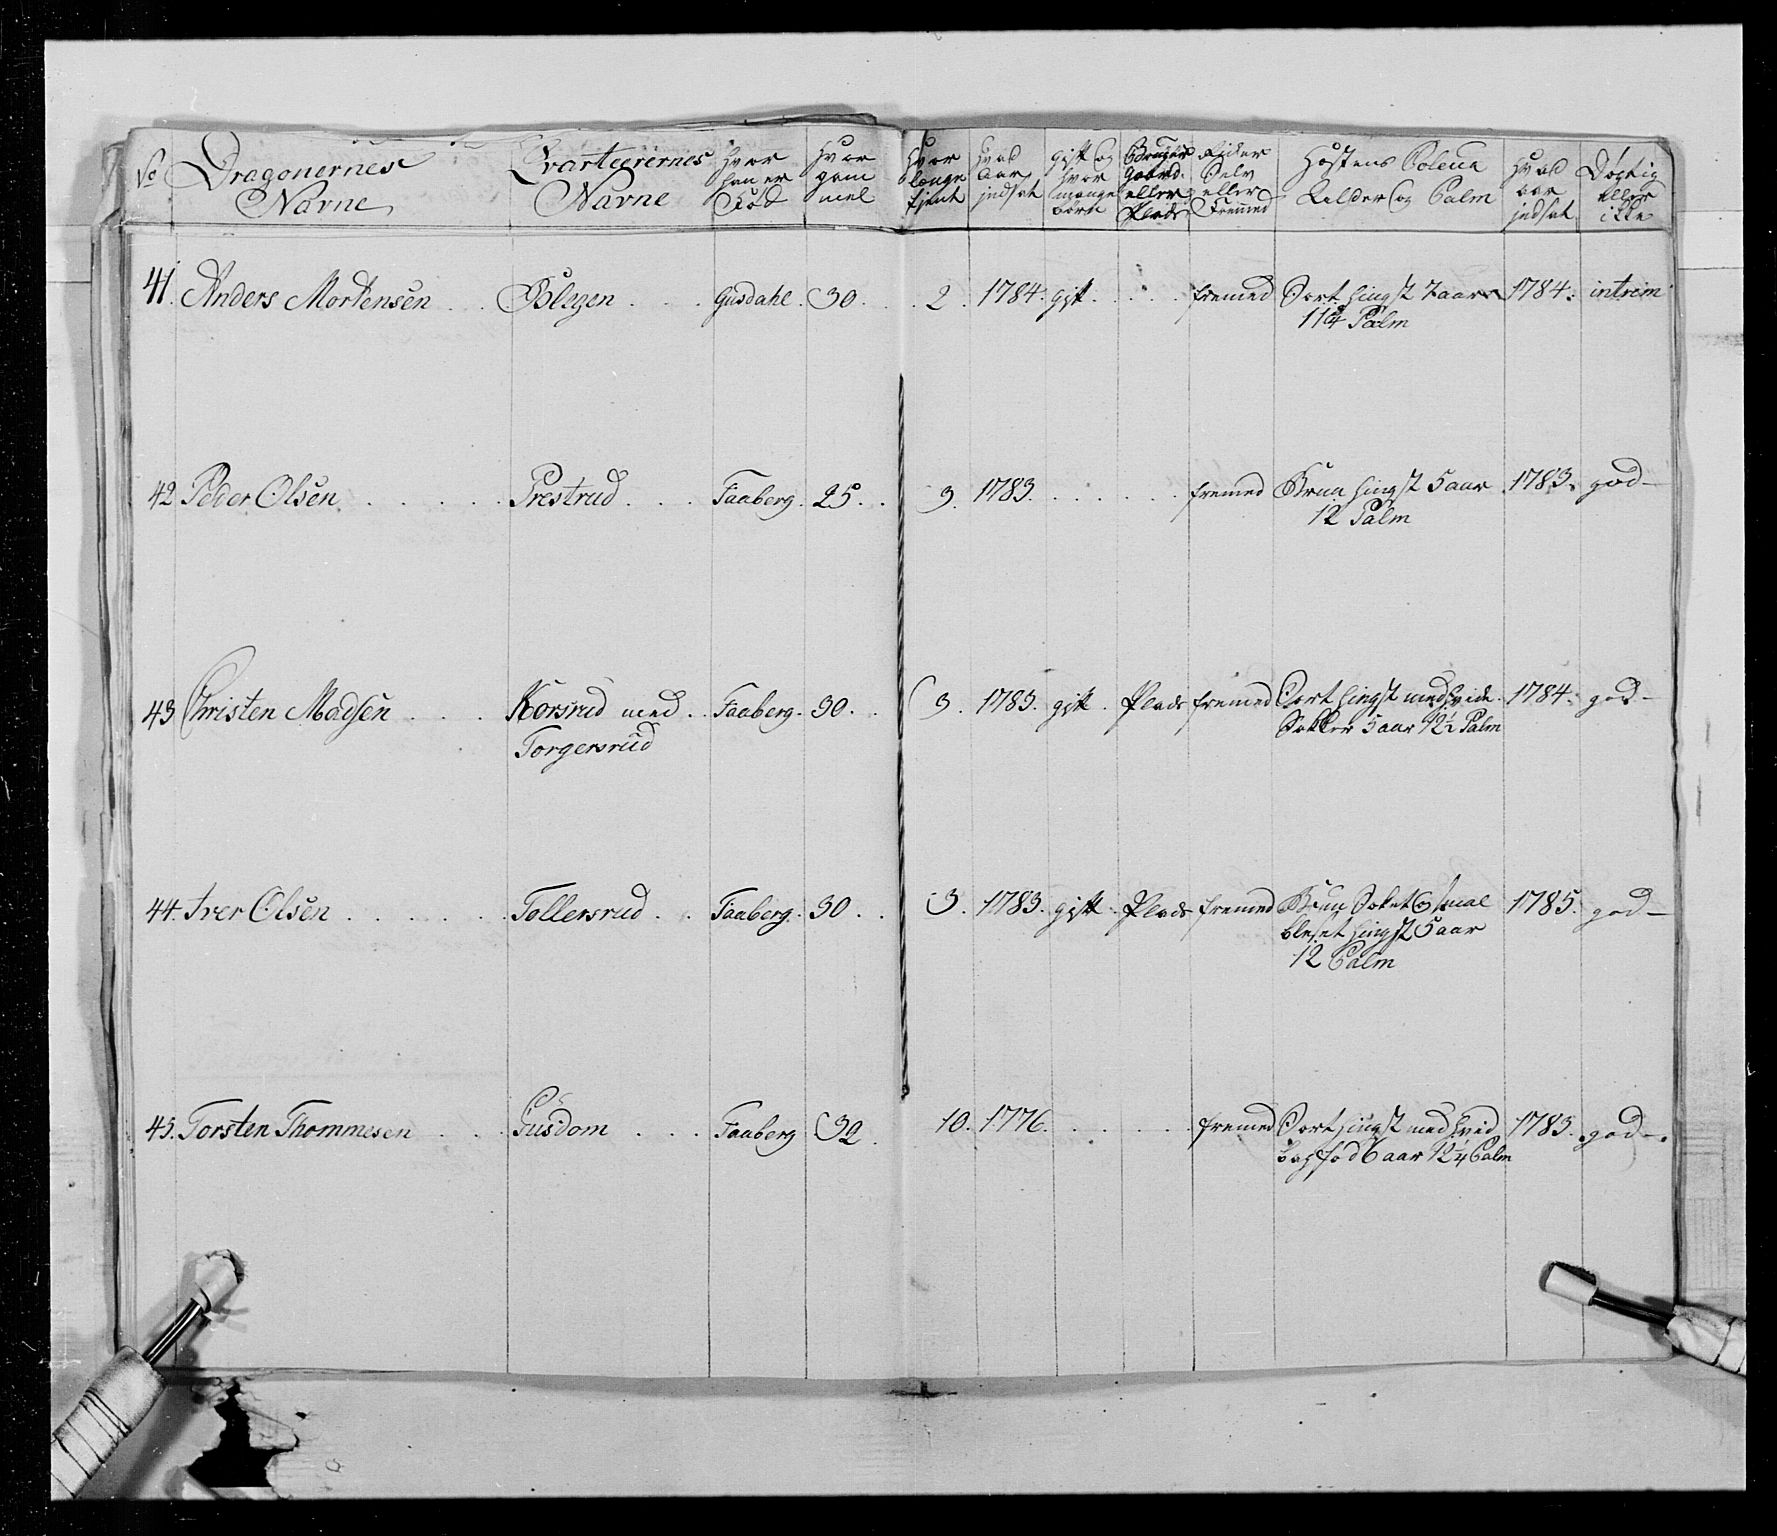 No Dragonernes Navne | Qvarteerernes Navne | Hvor han er Fød | Hvor gam mel | Hvor længe tient | Hvad Aar jndsat | gift og hvor mange børn | Bruger gaard eller Plads | Rider Selv eller Fremmed | Hæstens Coleur Alder og Palm | Hvad aar jndsat | Dygtig eller ikke
41. Anders Mortensen . . | . . . | Gusdahl . | 30 . | . 2 . | 1784. | gift . | . . . | fremed | Sort hingst 7 aar | 1784. | intrim
11¼ Palm
42 Peder Olsen . . . . . . | Prestrud . . . | Faaberg . | 25 . . | 3. | 1783. | . . . . . . | fremed | Brun hingst 5 aar | 1783. | god –
12 Palm
43 Christen Madsen . . . . | Korsrud med . . | Faaberg . | 30 . . | 3 . | 1783. | gift . | Plads | fremed | Sort hingst med hvide | 1784. | god –
Torgersrud | Sokker 5 aar 12½ Palm
44. Iver Olsen . . . . . . | Tollersrud . . | Faaberg . | 30 . . | 3 . | 1783. | gift . | Plads | fremed | Brun Soket smal | 1785. | god –
bleset hingst 5 aar
12 Palm
45. Torsten Thommesen . . . | Gusdom . . . | Faaberg | 32 . | 10. | 1776. | . . . . . | fremed | Sort hingst med hvid | 1783. | god –.
bagfod 6 aar 12¼ Palm